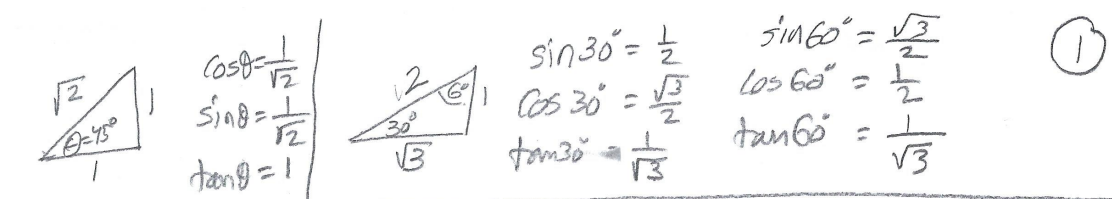 √2
θ=45°
1
1
cosθ=1/√2
sinθ=1/√2
tanθ=1
2
60°
30°
1
√3
sin30°=1/2
cos30°=√3/2
tan30°=1/√3
sin60°=√3/2
cos60°=1/2
tan60°=1/√3
1